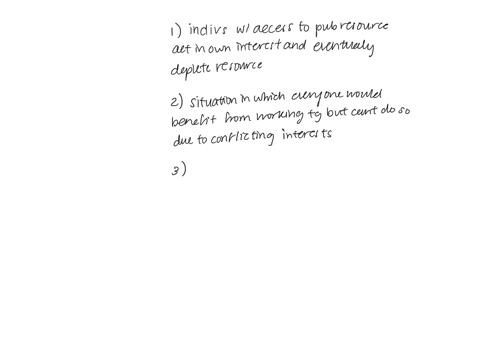 1) indivs w/ access to pub resource
act in own interest and eventually
deplete resource
2) situation in which everyone would
benefit from working tg but cant do so
due to conflicting interests
3)